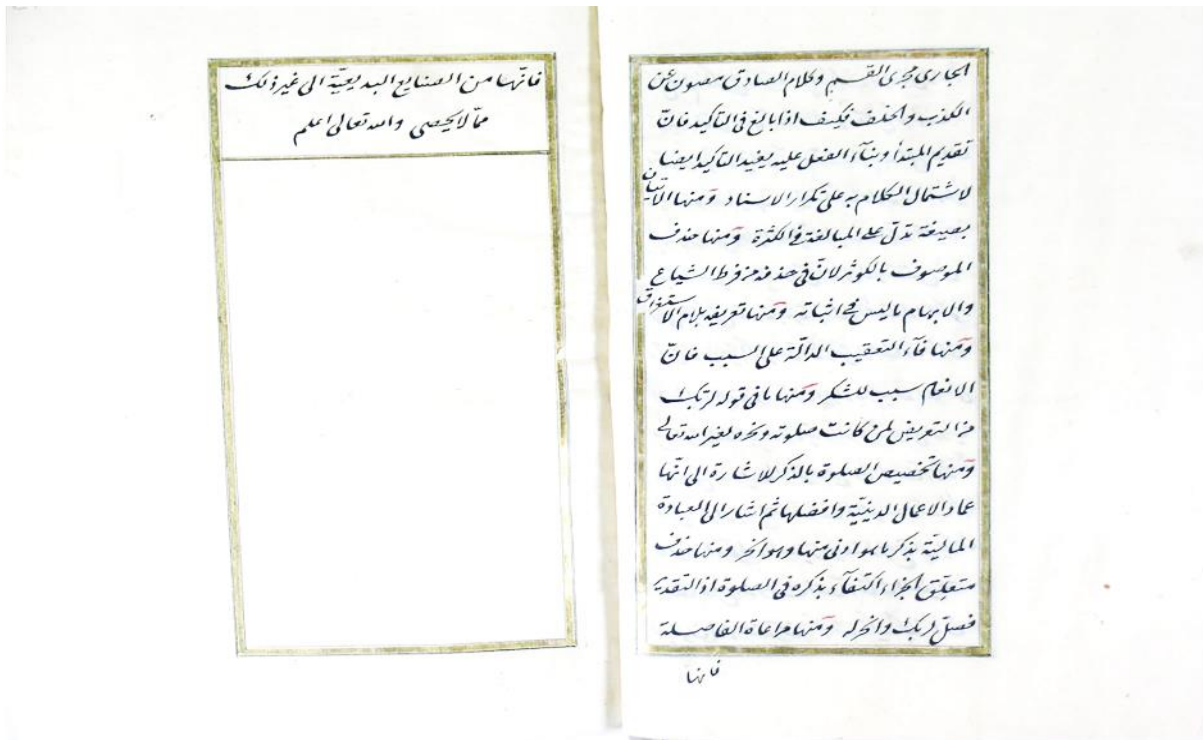 الجارى مجرى القسم وكلام الصادق مصون عن
الكذب والخلف فكيف اذا بالغ فى التاكيد فانّ
تقديم المبتدأ وبنآء الفعل عليه يفيد التاكيد ايضا
لاشتمال الكلام به على تكرار الاسناد ومنها الاتيان
بصيغة تدلّ على المبالغة فى الكثرة ومنها حذف
الموصوف بالكوثر لانّ فى حذفه من فرط الشياع
والابهام ما ليس فى اثباته ومنها تعريفه بلام الاستغراق
ومنها فآء التعقيب الدالّة على السبب فانّ
الانعام سبب للشكر ومنها ما فى قوله لربّك
من التعريض لمن كانت صلوته ونحره لغير الله تعالى
ومنها تخصيص الصلوة بالذكر للاشارة الى انّها
عماد الاعمال الدينيّة وافضلها ثم اشار الى العبادة
الماليّة بذكر ما هو ادنى منها وهو النحر ومنها حذف
متعلّق الجزاء اكتفآء بذكره فى الصلوة اذ التقدير
فصلّ لربك وانحر له ومنها مراعاة الفاصلة
فانها
فانّها من الصنايع البديعيّة الى غير ذلك
ممّا لا يحصى والله تعالى اعلم